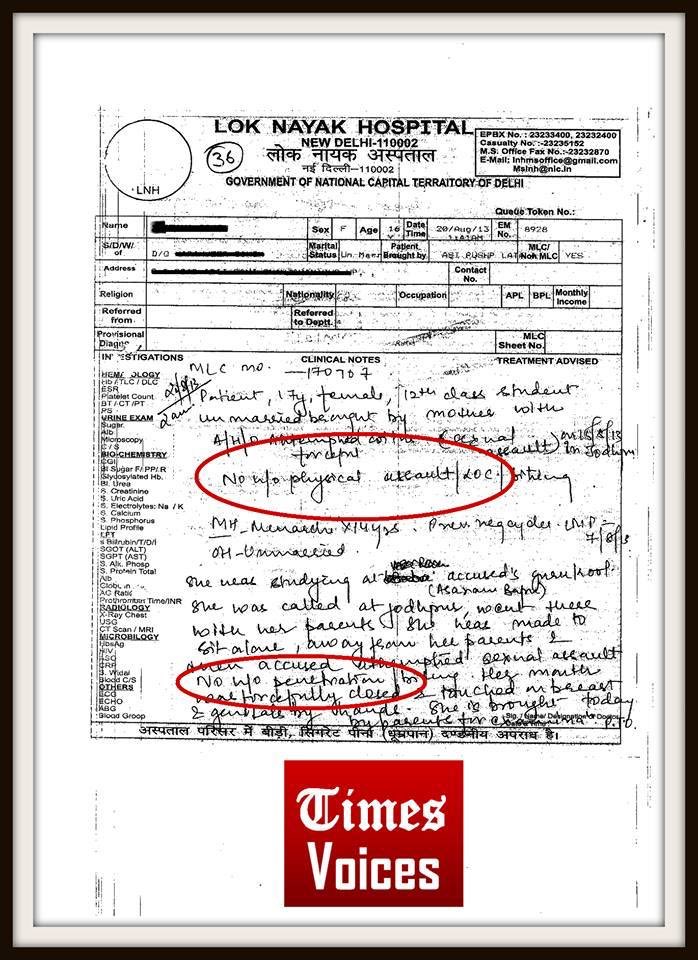 LOK NAYAK HOSPITAL
NEW DELHI-110002
लोक नायक अस्पताल
नई दिल्ली-110002
GOVERNMENT OF NATIONAL CAPITAL TERRAITORY OF DELHI
36
LNH
EPBX No. : 23233400, 23232400
Casualty No. :-23235152
M.S. Office Fax No.:-23232870
E-Mail: lnhmsoffice@gmail.com
Mslnh@nic.in
Queue Token No.:
Name Sex F Age 16 Date Time 20/Aug/13 EM No. 8928
S/D/W/ of D/O Marital Status Un. Marr Patient Brought by ASI PUSHP LAT MLC/ Non MLC YES
Address Contact No.
Religion Nationality Occupation APL BPL Monthly Income
Referred from Referred to Deptt.
Provisional Diagnc MLC Sheet No.
INVESTIGATIONS CLINICAL NOTES TREATMENT ADVISED
MLC no. — 170707
Patient, 17y, female, 12th class student
unmarried brought by mother with
A/H/O attempted sexual assault in Jodhpur
forceful
No h/o physical assault / LOC / biting
MH - Menarche x 14 yrs. Prev. reg cycles. LMP - 7/8/13
OH - Unmarried.
She was studying at accused's gurukool
(Asaram Bapu)
She was called at Jodhpur, went there
with her parents. She was made to
sit alone, away from her parents &
then accused attempted sexual assault
No h/o penetration / Her mouth
was forcefully closed & touched on breast
& genitals by hands. She is brought today
by parents for P.T.O.
HEMATOLOGY
Hb / TLC / DLC
ESR
Platelet Count
BT / CT / PT
PS
URINE EXAM
Sugar
Alb
Microscopy
C / S
BIO-CHEMISTRY
Bl Sugar F/ PP/ R
Glydosylated Hb.
Bl. Urea
S. Creatinine
S. Uric Acid
S. Electrolytes: Na / K
S. Calcium
S. Phosphorus
Lipid Profile
LFT
s Bilirubin/T/D/I
SGOT (ALT)
SGPT (AST)
S. Alk. Phosp
S. Protein Total
Alb
AG Ratio
Prothrombin Time/INR
RADIOLOGY
X-Ray Chest
USG
CT Scan / MRI
MICROBIOLOGY
HbsAg
HIV
CRP
S. Widal
Blood C/S
OTHERS
ECG
ECHO
ABG
Blood Group
Sig. / Name/ Designation of Doctor
अस्पताल परिसर में बीड़ी, सिगरेट पीना (धूम्रपान) दण्डनीय अपराध है।
Times
Voices